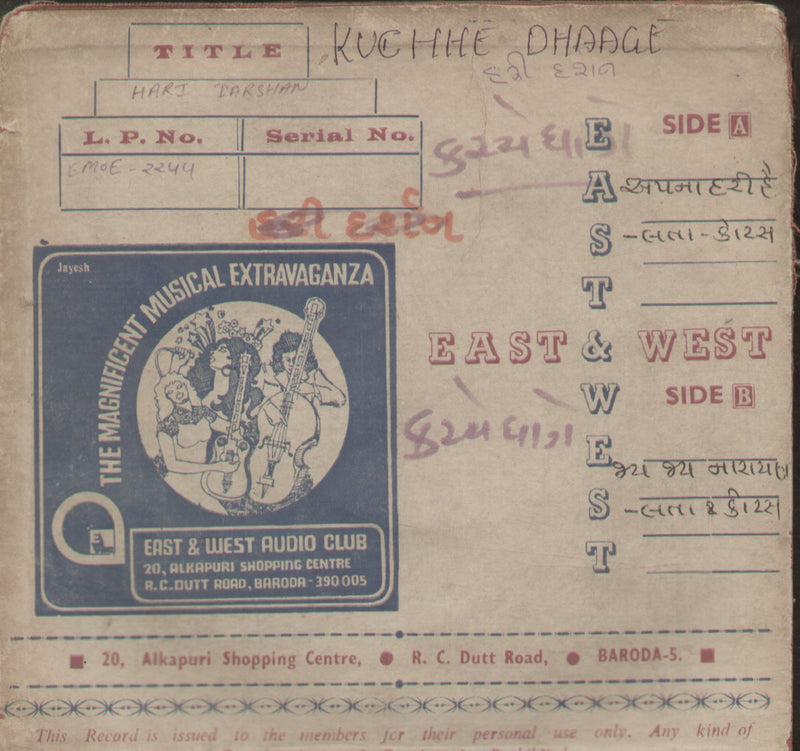 TITLE
KUCHHE DHAAGE
હરી દશન
HARI DARSHAN
L. P. No. Serial No.
EMOE - 2244
કચ્ચે ધાગે
હરી દર્શન
SIDE A
અપના હરી હૈ
-લતા - કોરસ
EAST & WEST
EAST & WEST
SIDE B
કચ્ચે ધાગે
જય જય નારાયણ
-લતા & કોરસ
Jayesh
THE MAGNIFICENT MUSICAL EXTRAVAGANZA
EAST & WEST AUDIO CLUB
20, ALKAPURI SHOPPING CENTRE
R.C.DUTT ROAD, BARODA - 390 005
20, Alkapuri Shopping Centre, R. C. Dutt Road, BARODA-5.
This Record is issued to the members for their personal use only. Any kind of